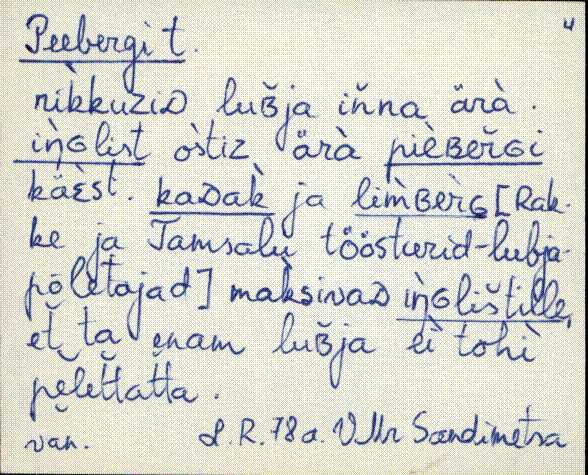 4
Peebergi t.
rìkkuziᴅ luʙ̆ja iňna ärà.
iǹɢlist òstiz ärà pièʙĕrɢi
käèst. kaᴅak̀ ja lim̀ʙèrɢ [Rak-
ke ja Tamsalu töösturid-lubja-
põletajad] maksivaᴅ iǹɢlištille,
eť ta enam luʙ̆ja eì tohì
pĕleťtaťta.
van. L.R. 78 a. VMr Sandimetsa